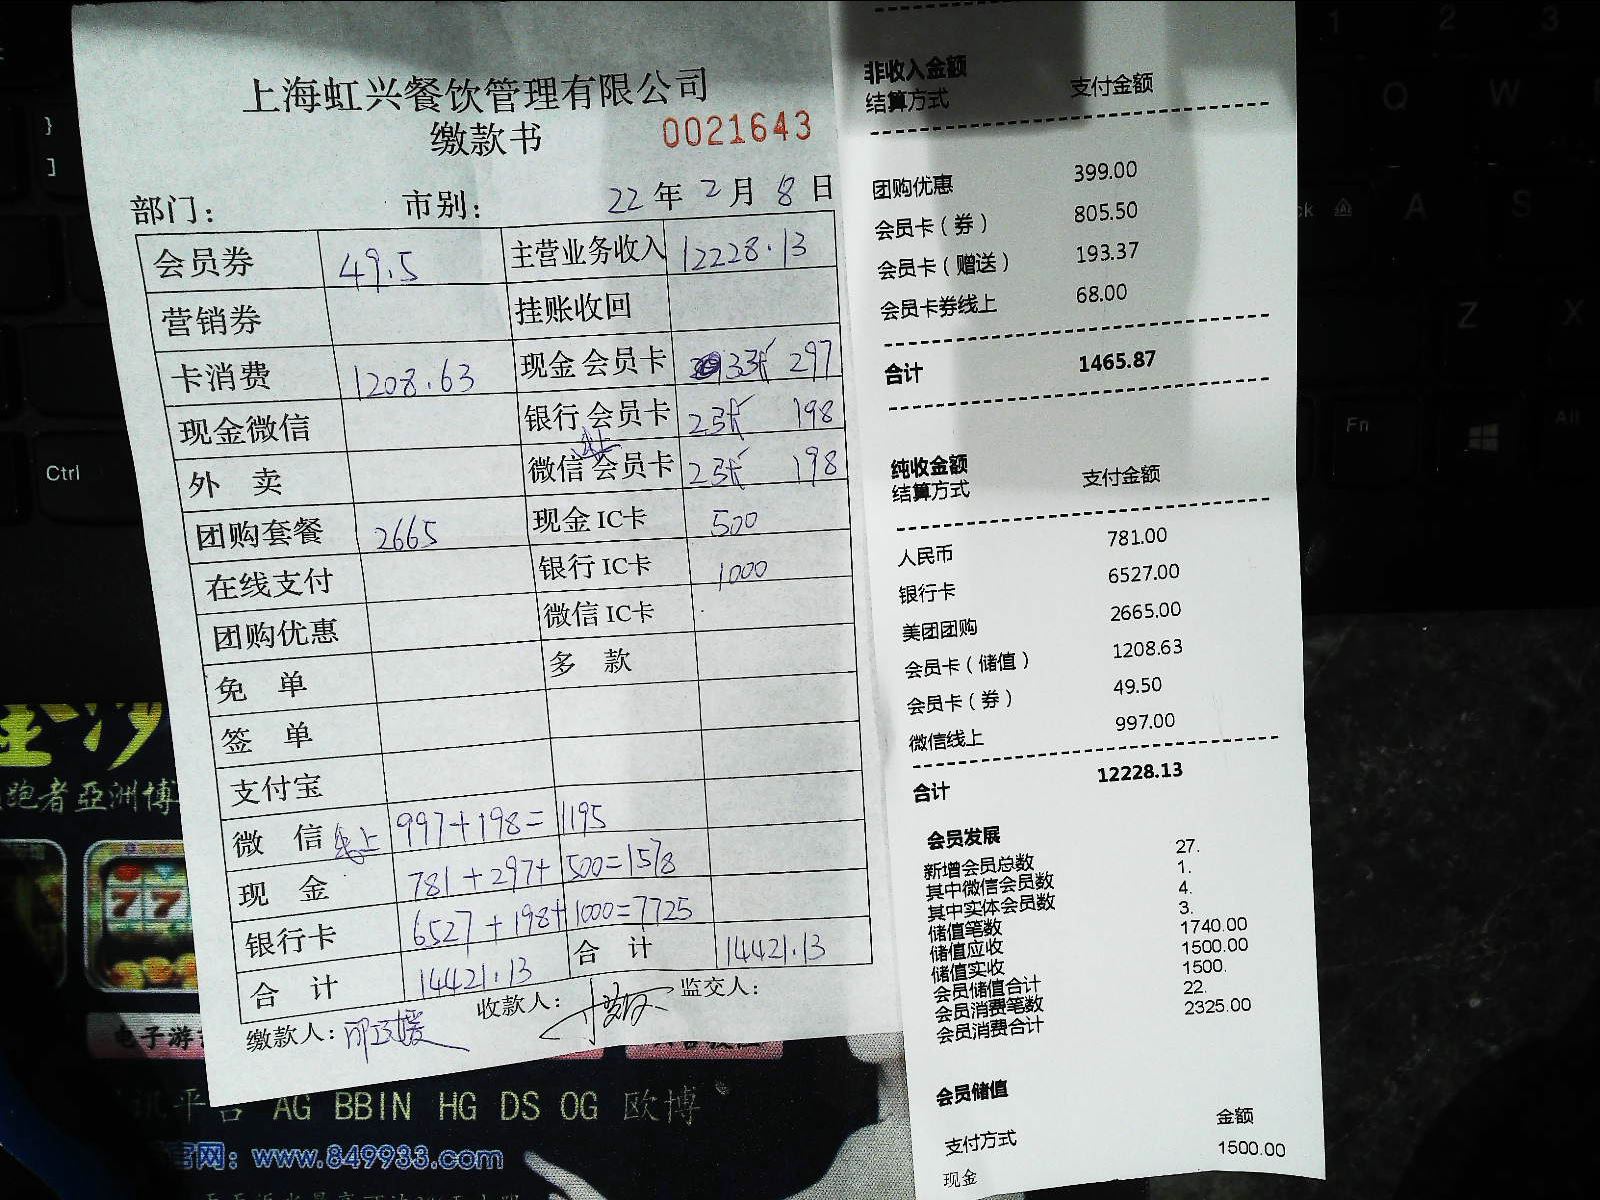 上海虹兴餐饮管理有限公司
缴款书 0021643
部门： 市别： 22年2月8日
会员券 49.5 主营业务收入 12228.13
营销券 挂账收回
卡消费 1208.63 现金会员卡 3张 297
现金微信 银行会员卡 2张 198
外卖 微信线上会员卡 2张 198
团购套餐 2665 现金IC卡 500
在线支付 银行IC卡 1000
团购优惠 微信IC卡
免单 多款
签单
支付宝
微信线上 997+198=1195
现金 781+297+500=1578
银行卡 6527+198+1000=7725
合计 14421.13 合计 14421.13
缴款人： 收款人： 监交人：
非收入金额
结算方式 支付金额
团购优惠 399.00
会员卡（券） 805.50
会员卡（赠送） 193.37
会员卡券线上 68.00
合计 1465.87
纯收金额
结算方式 支付金额
人民币 781.00
银行卡 6527.00
美团团购 2665.00
会员卡（储值） 1208.63
会员卡（券） 49.50
微信线上 997.00
合计 12228.13
会员发展
新增会员总数 27.
其中微信会员数 1.
其中实体会员数 4.
储值笔数 3.
储值应收 1740.00
储值实收 1500.00
会员储值合计 1500.
会员消费笔数 22.
会员消费合计 2325.00
会员储值
支付方式 金额
现金 1500.00
}
]
Ctrl
1 2 3
Q W
A S
Z X
Fn
Alt
跑者亞洲博
7 7 7
电子游
讯平台 AG BBIN HG DS OG 欧博
官网：www.849933.com